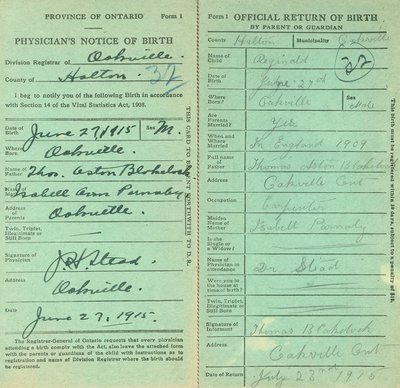 PROVINCE OF ONTARIO Form 1
PHYSICIAN'S NOTICE OF BIRTH
Division Registrar of Oakville.
County of Halton. 32
I beg to notify you of the following Birth in accordance
with Section 14 of the Vital Statistics Act, 1908.
Date of Birth June 27/1915 Sex M.
Where Born Oakville.
Name of Father Thos. Aston Blakelock
Name of Isabell Ann Parnaby
Address of Parents Oakville.
Twin, Triplet, Illegitimate or Still Born
Signature of Physician J.H. Stead.
Address Oakville.
Date June 27, 1915.
The Registrar-General of Ontario requests that every physician
attending a birth comply with the Act, also leave the attached form
with the parents or guardians of the child with instructions as to
registration and name of Division Registrar where the birth should
be registered.
THIS CARD TO BE SENT FORTHWITH TO D.R.
Form 1 OFFICIAL RETURN OF BIRTH
BY PARENT OR GUARDIAN
County Halton Municipality Oakville
Name of Child Reginald 32
Date of Birth June 27th
Where Born? Oakville Sex Male
Are Parents Married? Yes
When and Where Married In England 1909
Full name of Father Thomas Aston Blakelock
Address Oakville Ont
Occupation Carpenter
Maiden Name of Mother Isabell Parnaby
Is she Single or a Widow?
Name of Physician in attendance Dr Stead
Were you in the house at time of birth?
Twin, Triplet, Illegitimate or Still Born
Signature of Informant Thomas Blakelock
Address Oakville Ont
Date of Return July 23 1915